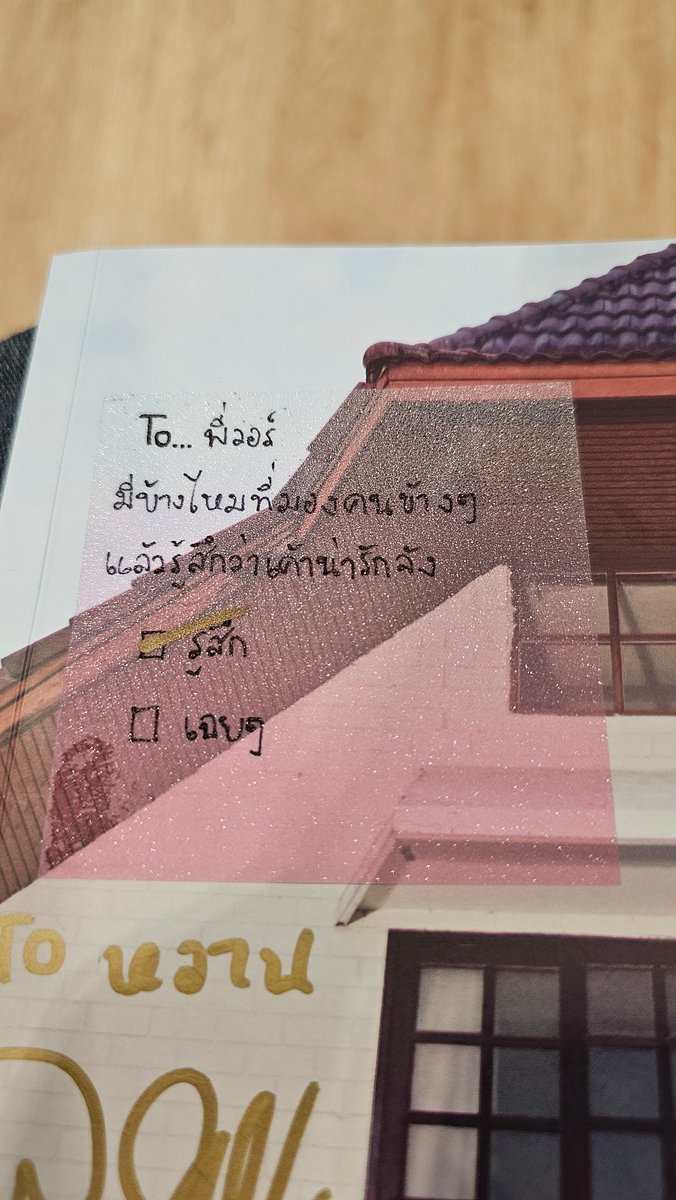 To... พี่วอร์
มีข้างไหมที่มองคนข้างๆ
แล้วรู้สึกว่าเค้าน่ารักจัง
รู้สึก
เฉยๆ
To หวาน